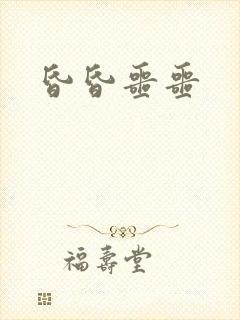 昏昏噩噩
福壽堂